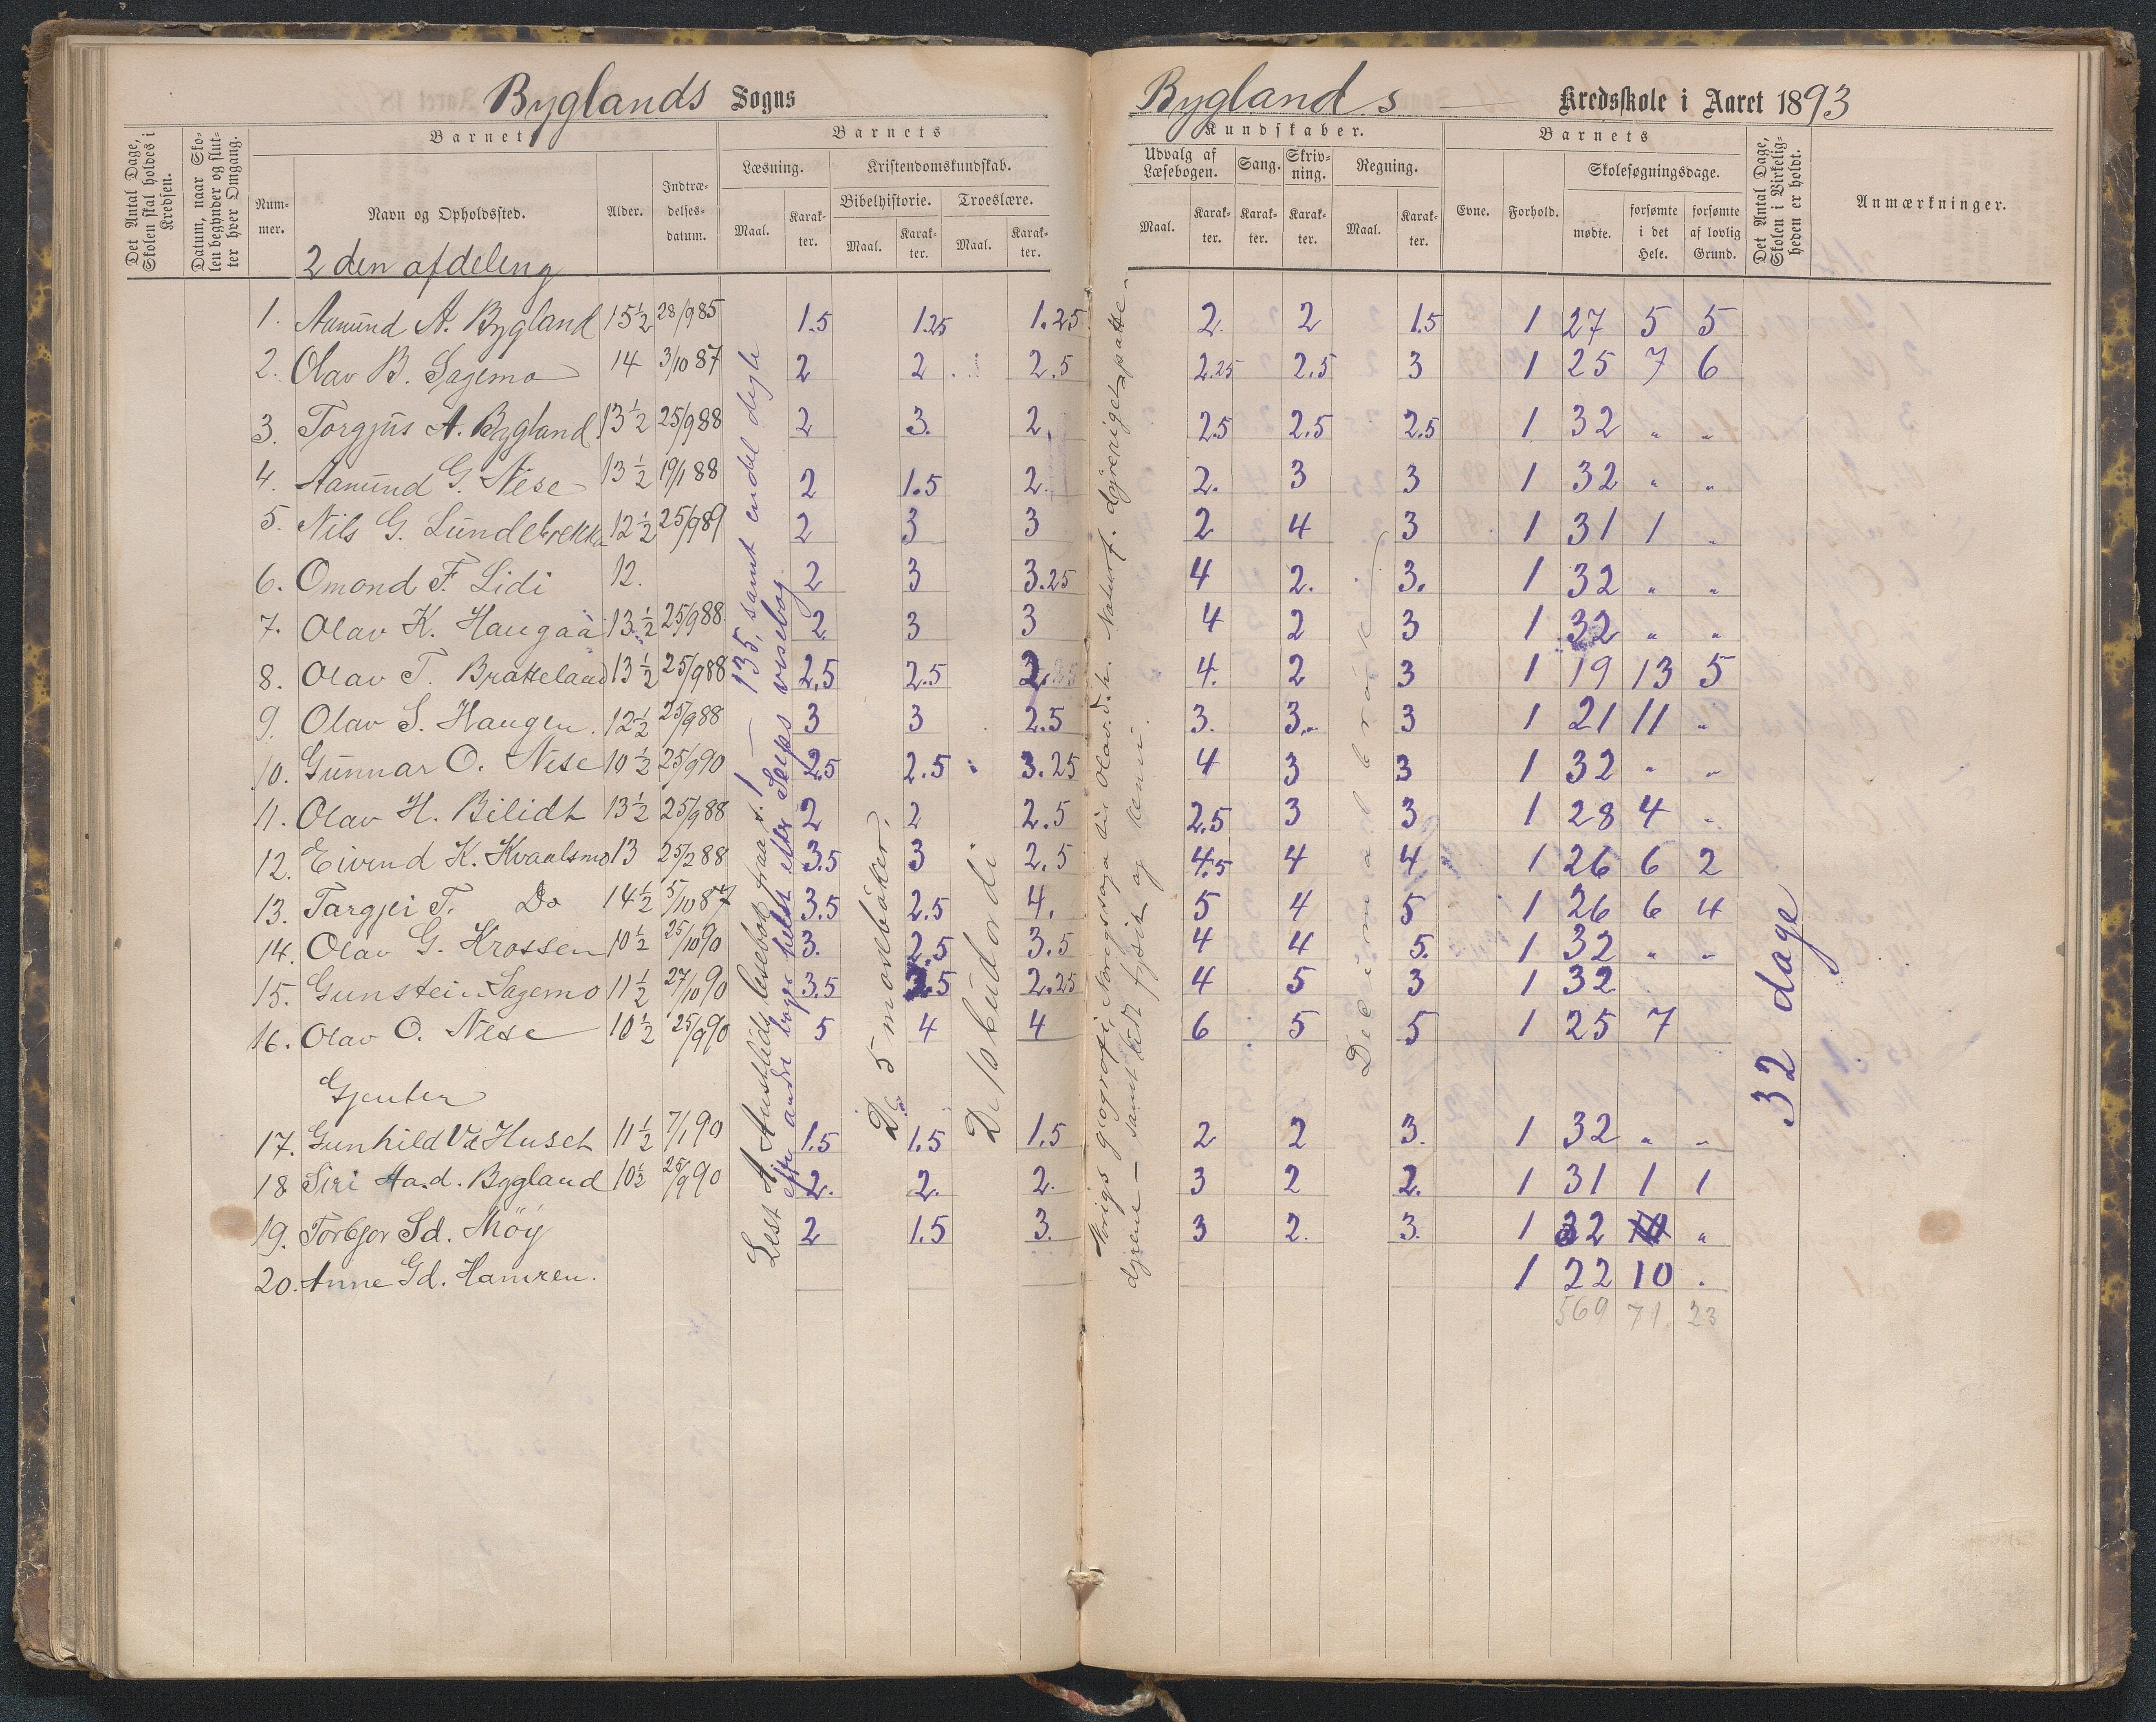 Byglands Sogns
Bygland s — Kredsskole i Aaret 1893
Det Antal Dage, Skolen skal holdes i Kredsen.
Datum, naar Skolen begynder og slutter hver Omgang.
Barnets
Nummer.
Navn og Opholdssted.
Alder.
Indtrædelsesdatum.
Barnets
Læsning.
Maal.
Karakter.
Kristendomskundskab.
Bibelhistorie.
Maal.
Karakter.
Troeslære.
Maal.
Karakter.
Kundskaber.
Udvalg af Læsebogen.
Maal.
Karakter.
Sang.
Karakter.
Skrivning.
Karakter.
Regning.
Maal.
Karakter.
Barnets
Evne.
Forhold.
Skolesøgningsdage.
mødte.
forsømte i det Hele.
forsømte af lovlig Grund.
Det Antal Dage, Skolen i Virkeligheden er holdt.
Anmærkninger.
2den afdeleng
1. Aamund A. Bygland 15½ 28/9 85 1.5 1.25 1.25 2. 2 1.5 1 27 5 5
2. Olav B. Sagemo 14 3/10 87 2 2 2.5 2.25 2.5 3 1 25 7 6
3. Torgjus A. Bygland 13½ 25/9 88 2 3. 2. 2.5 2.5 2.5 1 32 " "
4. Aamund G. Nese 13½ 19/1 88 2 1.5 2. 2. 3 3 1 32 " "
5. Nils G. Lundebrekka 12½ 25/9 89 2 3 3 2 4 3 1 31 1 "
6. Omond F. Lidi 12. 2 3 3.25 4 2. 3. 1 32 " "
7. Olav K. Haugaa 13½ 25/9 88 2 3 3 4 2 3 1 32 " "
8. Olav T. Bratteland 13½ 25/9 88 2.5 2.5 4. 2 3 1 19 13 5
9. Olav S. Haugen. 12½ 25/9 88 3 3 2.5 3. 3. 3 1 21 11 "
10. Gunnar O. Nese 10½ 25/9 90 2.5 2.5 3.25 4 3 3 1 32 " "
11. Olav H. Bilidt 13½ 25/9 88 2 2 2.5 2.5 3 3 1 28 4 "
12. Eivind K. Kvaalsmo 13 25/2 88 3.5 3 2.5 4.5 4 4 1 26 6 2
13. Targjei T. Do 14½ 5/10 87 3.5 2.5 4. 5 4 5 1 26 6 4
14. Olav G. Krossen 10½ 25/10 90 3. 2.5 3.5 4 4 5. 1 32 " "
15. Gunstein Sagemo 11½ 27/10 90 3.5 2.5 2.25 4 5 3 1 32
16. Olav O. Nese 10½ 25/9 90 5 4 4 6 5 5 1 25 7
Gjenter
17. Gunhild Vd Huset 11½ 7/1 90 1.5 1.5 1.5 2 2 3. 1 32 " "
18 Siri Aa.d. Bygland 10½ 25/9 90 2. 2. 2. 3 2 2. 1 31 1 1
19. Torbjor Sd. Möy 2 1.5 3. 3 2. 3. 1 32 "
20. Anne Gd. Hamren. 1 22 10 .
569 71 23
Lest A Austlids lesebok fraa s. 1 — 135, samt endel digte
efter andre bøger helst efter Seips visebog
De 5 mosebøker.
De 10 budordi
Norigs geografi, Norigssoga
samt litt fysik og kemi.
Desimalbrøk
32 dage